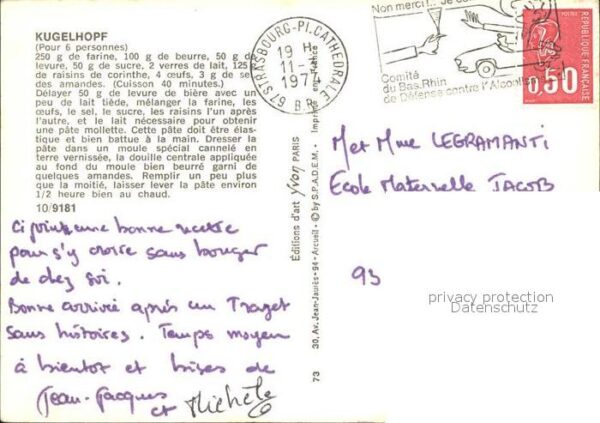 KUGELHOPF
(Pour 6 personnes)
250 g de farine, 100 g de beurre, 50 g de
levure, 50 g de sucre, 2 verres de lait, 125 g
de raisins de corinthe, 4 œufs, 3 g de sel
des amandes. (Cuisson 40 minutes.)
Délayer 50 g de levure de bière avec un
peu de lait tiède, mélanger la farine, les
œufs, le sel, le sucre, les raisins l'un après
l'autre, et le lait nécessaire pour obtenir
une pâte mollette. Cette pâte doit être élas-
tique et bien battue à la main. Dresser la
pâte dans un moule spécial cannelé en
terre vernissée, la douille centrale appliquée
au fond du moule bien beurré garni de
quelques amandes. Remplir un peu plus
que la moitié, laisser lever la pâte environ
1/2 heure bien au chaud.
10/9181
Ci jointe une bonne recette
pour s'y croire sans bouger
de chez soi.
Bonne arrivée après un Trajet
sans histoires. Temps moyen
à bientot et bises de
Jean-Jacques
et Michèle
Editions d'art Yvon PARIS
30, Av. Jean-Jaurès - 94 - Arcueil - © by S.P.A.D.E.M. - Imprimé en France
73
67 STRASBOURG-PL. CATHEDRALE
19 H
11-
B.R.
Non merci!...
Comité
du Bas.Rhin
de Défense contre l'Alcoolisme
POSTES
0,50
REPUBLIQUE FRANÇAISE
M et Mme LEGRAMANTI
Ecole Maternelle JACOB
93
privacy protection
Datenschutz